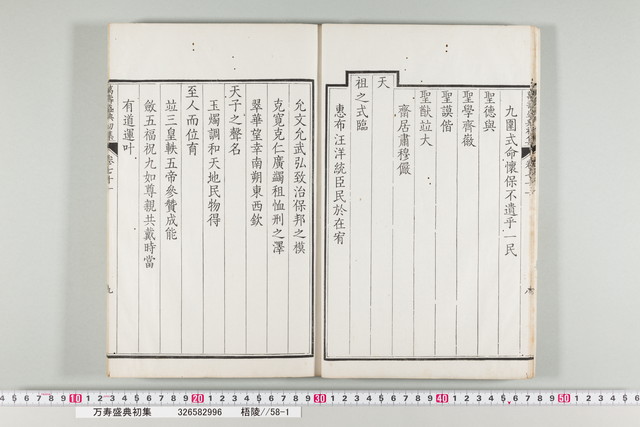 九圍式命懷保不遺乎一民
聖德與
聖學齊徽
聖謨偕
聖猷竝大
齋居肅穆儼
天
祖之式臨
惠布汪洋統臣民於在宥
允文允武弘致治保邦之模
克寬克仁廣蠲租恤刑之澤
翠華望幸南朔東西欽
天子之聲名
玉燭調和天地民物得
至人而位育
竝三皇軼五帝參贊成能
斂五福祝九如尊親共戴時當
有道運叶
萬壽盛典初集
卷七十一
九
10 20 30 40 50
万寿盛典初集 326582996 梧陵//58-1